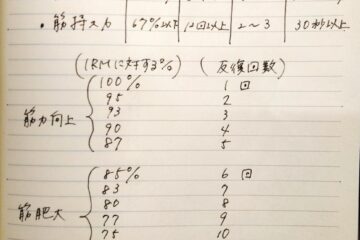 ・筋持久力 67%以下 12回以上 2〜3 30秒以上
(1RMに対する%) (反復回数)
100% 1回
95 2
93 3
筋力向上 90 4
87 5
85% 6回
83 7
筋肥大 80 8
77 9
75 10